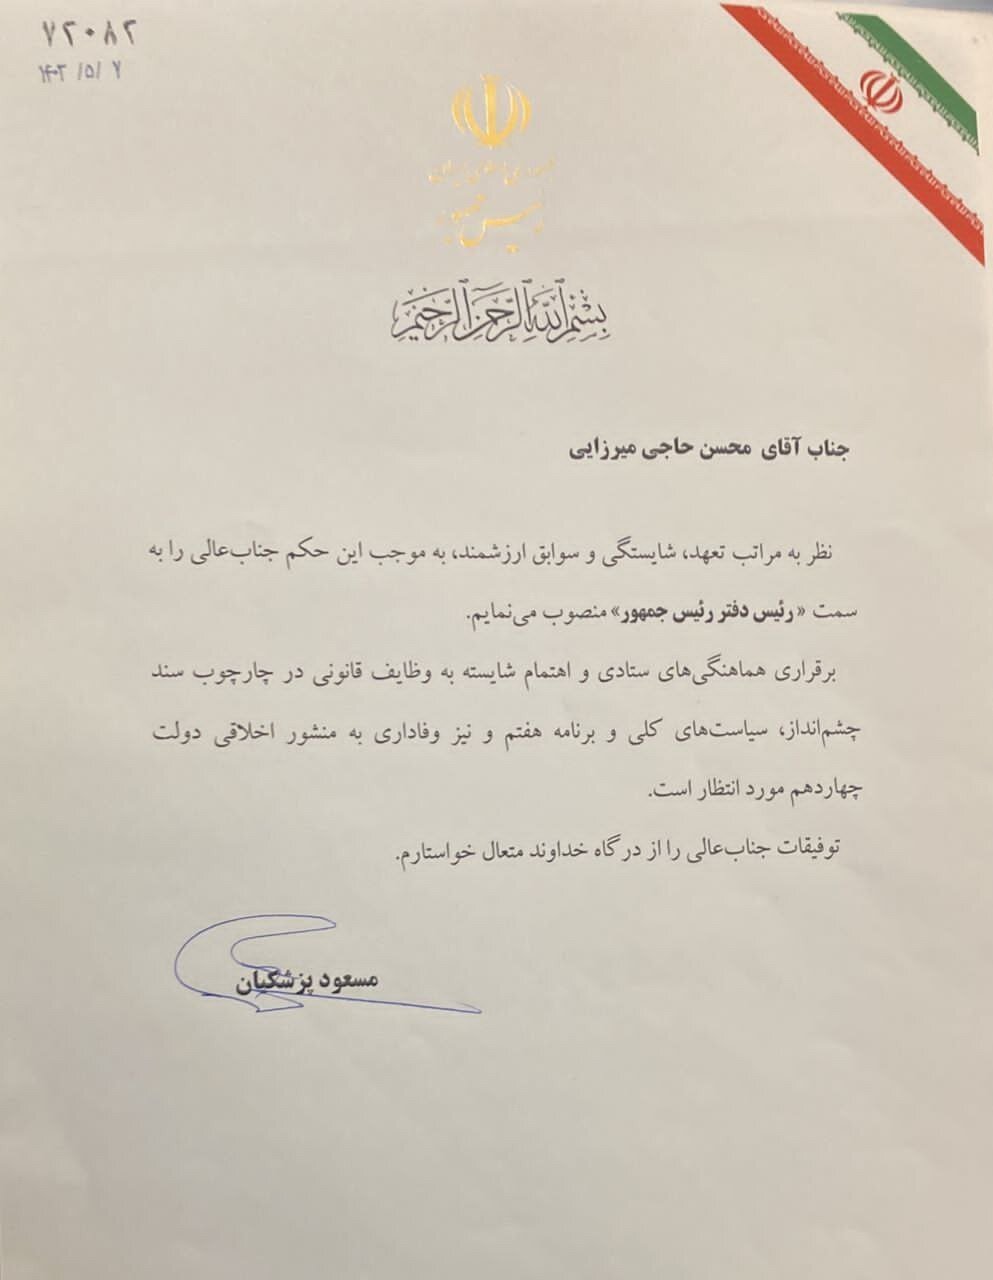 ۷۲۰۸۲
۱۴۰۳/۵/۷
جمهوری اسلامی ایران
رئیس جمهور
بِسْمِ اللَّهِ الرَّحْمَنِ الرَّحِيمِ
جناب آقای محسن حاجی میرزایی
نظر به مراتب تعهد، شایستگی و سوابق ارزشمند، به موجب این حکم جناب‌عالی را به
سمت «رئیس دفتر رئیس جمهور» منصوب می‌نمایم.
برقراری هماهنگی‌های ستادی و اهتمام شایسته به وظایف قانونی در چارچوب سند
چشم‌انداز، سیاست‌های کلی و برنامه هفتم و نیز وفاداری به منشور اخلاقی دولت
چهاردهم مورد انتظار است.
توفیقات جناب‌عالی را از درگاه خداوند متعال خواستارم.
مسعود پزشکیان